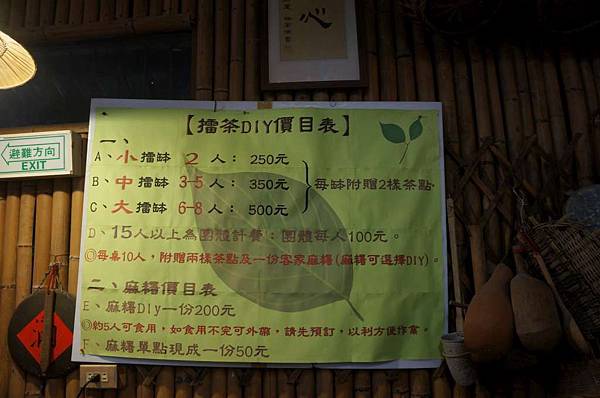 心
【擂茶DIY價目表】
一、
A、小擂缽 2 人： 250元
B、中擂缽 3-5 人： 350元
C、大擂缽 6-8 人： 500元
每缽附贈2樣茶點
D、15人以上為團體計餐：團體每人100元。
◎每桌10人，附贈兩樣茶點及一份客家麻糬(麻糬可選擇DIY)。
二、麻糬價目表
E、麻糬DIy一份200元
◎約5人可食用，如食用不完可外帶，請先預訂，以利方便作業。
F、麻糬單點現成一份50元
避難方向
EXIT